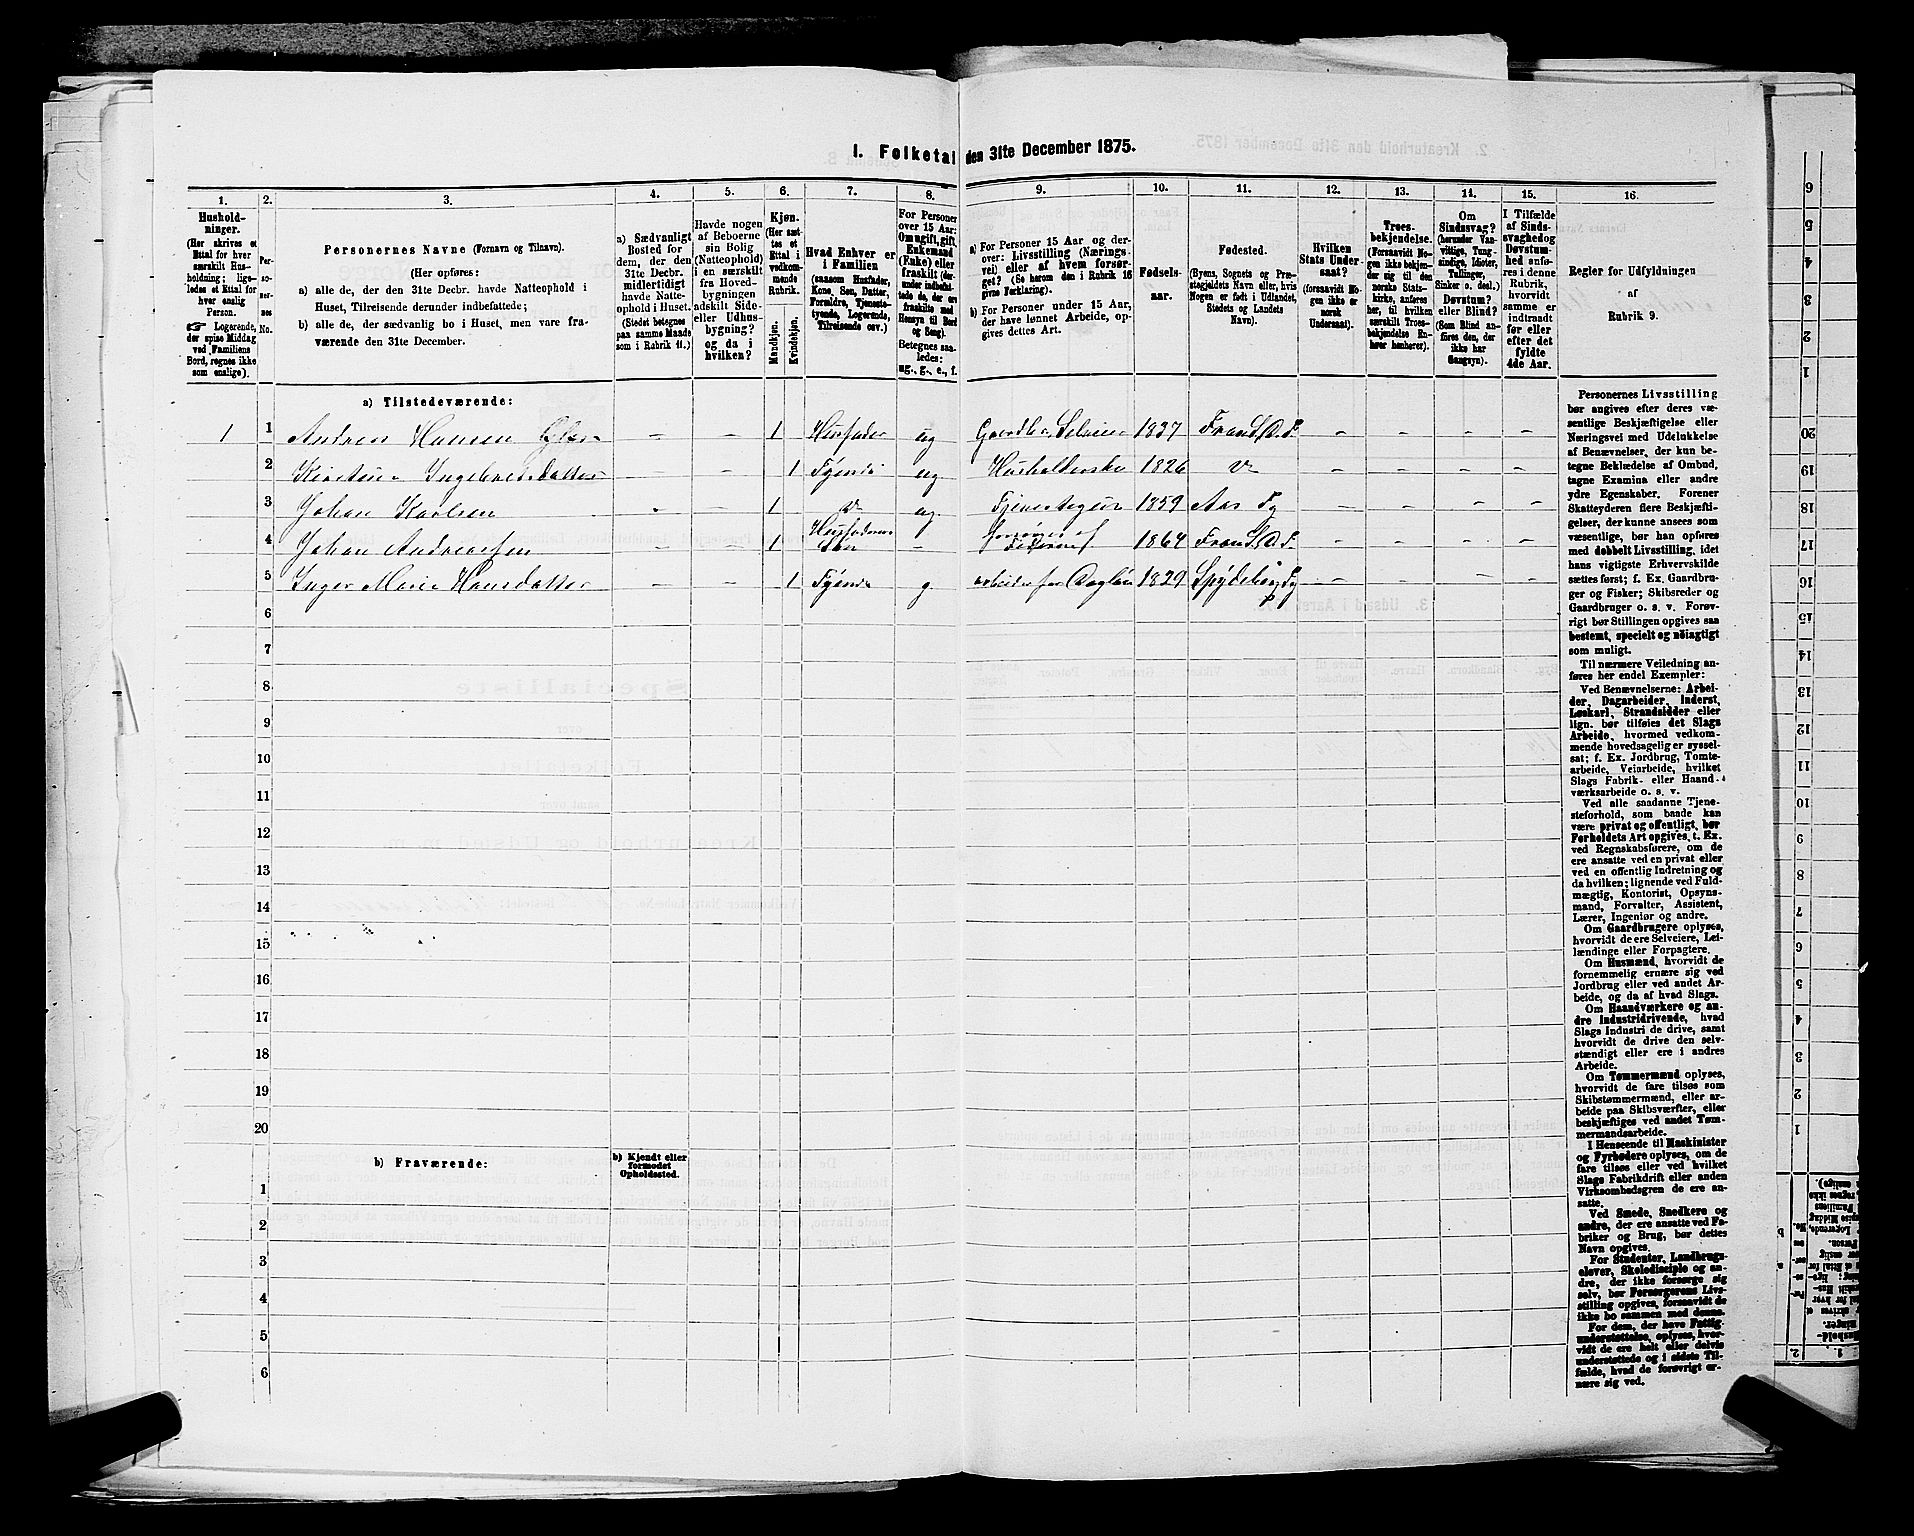 1. Folketal den 31te December 1875.
1. 2. 3. 4. 5. 6. 7. 8. 9. 10. 11. 12. 13. 14. 15. 16.
Hushold-
ninger.
(Her skrives et
Ettal for hver
særskilt Hus-
holdning; lige-
ledes et Ettal for
hver enslig
Person.
☞ Logerende,
der spise Middag
ved Familiens
Bord, regnes ikke
som enslige).
Per-
so-
ner-
nes
No.
Personernes Navne (Fornavn og Tilnavn).
(Her opføres:
a) alle de, der den 31te Decbr. havde Natteophold i
Huset, Tilreisende derunder indbefattede;
b) alle de, der sædvanlig bo i Huset, men vare fra-
værende den 31te December.
a) Sædvanligt
Bosted for
dem, der den
31te Decbr.
midlertidigt
havde Natte-
ophold i Huset.
(Stedet betegnes
paa samme Maade
som i Rubrik 11.)
Havde nogen
af Beboerne
sin Bolig
(Natteophold)
i en særskilt
fra Hoved-
bygningen
adskilt Side-
eller Udhus-
bygning?
og da i
hvilken?
Kjøn.
(Her sæt-
tes et
Ettal i
vedkom-
mende
Rubrik.
Mandkjøn.
Kvindekjøn.
Hvad Enhver er
i Familien
(saasom Husfader,
Kone, Søn, Datter,
Forældre, Tjeneste-
tyende, Logerende,
Tilreisende osv.)
For Personer
over 15 Aar:
Om ugift, gift,
Enkemand
(Enke) eller
fraskilt (der-
under indbefat-
tede de, der ere
fraskilte med
Hensyn til Bord
og Seng).
Betegnes saa-
ledes:
ug., g., e., f.
a) For Personer 15 Aar og der-
over: Livsstilling (Nærings-
vei) eller af hvem forsør-
get? (Se herom den i Rubrik 16
givne Forklaring).
b) For Personer under 15 Aar,
der have lønnet Arbeide, op-
gives dettes Art.
Fødsels-
aar.
Fødested.
(Byens, Sognets og Præ-
stegjeldets Navn eller, hvis
Nogen er født i Udlandet,
Stedets og Landets
Navn).
Hvilken
Stats Under-
saat?
(forsaavidt No-
gen ikke er
norsk
Undersaat).
Troes-
bekjendelse.
(Forsaavidt No-
gen ikke bekjen-
der sig til den
norske Stats-
kirke, anføres
her, til hvilken
særskilt Troes-
bekjendelse En-
hver henhører).
Om
Sindssvag?
(herunder Van-
vittige, Tung-
sindige, Idioter,
Tullinger,
Sinker o. desl.)
Døvstum?
eller Blind?
(Som Blind an-
føres den, der
ikke har
Gangsyn).
I Tilfælde
af Sinds-
svaghed og
Døvstum-
hed anføres
i denne
Rubrik,
hvorvidt
samme er
indtraadt
før eller
efter det
fyldte
4de Aar.
Regler for Udfyldningen
af
Rubrik 9.
a) Tilstedeværende:
1 1 Andreas Hansen – – 1 Husfader ug Gaardbr. Selveier 1837 – – – –
2 Kirstine Ingebretsdatter – – 1 Tyende ug Husholderske 1826 – – – –
3 Johan Karlsen – – 1 ug Tjenestegut 1859 Aas – – – –
4 Johan Andreassen – – 1 Husfaderens Søn – forsørges af Faderen 1864 – – – –
5 Inger Marie Hansdatter – – 1 Tyende g 1829 – – – –
6
7
8
9
10
11
12
13
14
15
16
17
18
19
20
b) Fraværende:
b) Kjendt eller
formodet
Opholdssted.
1
2
3
4
5
6
Personernes Livsstilling
bør angives efter deres væ-
sentlige Beskjæftigelse eller
Næringsvei med Udelukkelse
af Benævnelser, der kun be-
tegne Beklædelse af Ombud,
tagne Examina eller andre
ydre Egenskaber. Forener
Skatteyderen flere Beskjæfti-
gelser, der kunne ansees som
væsentlige, bør han opføres
med dobbelt Livsstilling, idet
hans vigtigste Erhvervskilde
sættes først; f. Ex. Gaardbru-
ger og Fisker; Skibsreder og
Gaardbruger o. s. v. Forøv-
rigt bør Stillingen opgives saa
bestemt, specielt og nöiagtigt
som muligt.
Til nærmere Veiledning an-
føres her endel Exempler:
Ved Benævnelserne: Arbei-
der, Dagarbeider, Inderst,
Løskarl, Strandsidder eller
lign. bør tilføies det Slags
Arbeide, hvormed vedkom-
mende hovedsagelig er syssel-
sat; f. Ex. Jordbrug, Tomte-
arbeide, Veiarbeide, hvilket
Slags Fabrik- eller Haand-
værksarbeide o. s. v.
Ved alle saadanne Tjene-
steforhold, som baade kan
være privat og offentligt, bør
Forholdets Art opgives, t. Ex.
ved Regnskabsførere, om de
ere ansatte ved en privat eller
ved en offentlig Indretning og
da hvilken; lignende ved Fuld-
mægtig, Kontorist, Opsyns-
mand, Forvalter, Assistent,
Lærer, Ingeniør og andre.
Om Gaardbrugere oplyses,
hvorvidt de ere Selveiere, Lei-
lændinge eller Forpagtere.
Om Husmænd, hvorvidt de
fornemmelig ernære sig ved
Jordbrug eller ved andet Ar-
beide, og da af hvad Slags.
Om Haandværkere og an-
dre Industridrivende, hvad
Slags Industri de drive, samt
hvorvidt de drive den selv-
stændigt eller ere i andres
Arbeide.
Om Tømmermænd oplyses,
hvorvidt de fare tilsøs som
Skibstømmermænd, eller ar-
beide paa Skibsværfter, eller
beskjæftiges ved andet Tøm-
mermandsarbeide.
I Henseende til Maskinister
og Fyrbødere oplyses, om de
fare tilsøs eller ved hvilket
Slags Fabrikdrift eller anden
Virksombedsgren de ere an-
satte.
Ved Smede, Snedkere og
andre, der ere ansatte ved Fa-
briker og Brug, bør dettes
Navn opgives.
For Studenter, Landbrugs-
elever, Skoledisciple og an-
dre, der ikke forsørge sig
selv, bør Forsørgerens Livs-
stilling opgives, forsaavidt de
ikke bo sammen med denne.
For dem, der have Fattig-
understøttelse, oplyses, hvor-
vidt de ere helt eller delvis
understøttede og i sidste Til-
fælde, hvad de forøvrigt er-
nære sig ved.